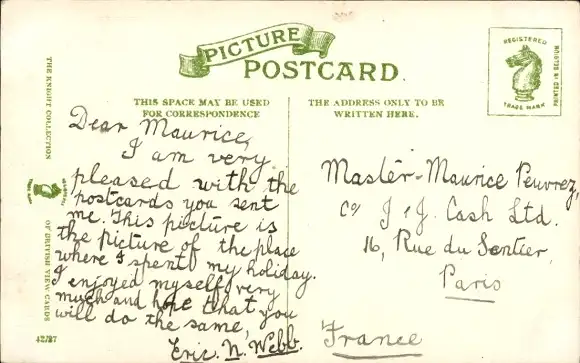 PICTURE
POSTCARD.
REGISTERED
TRADE MARK
PRINTED IN BELGIUM
THE KNIGHT COLLECTION
OF BRITISH VIEW CARDS
42/27
THIS SPACE MAY BE USED
FOR CORRESPONDENCE
THE ADDRESS ONLY TO BE
WRITTEN HERE.
Dear Maurice,
I am very
pleased with the
postcards you sent
me. This picture is
the picture of the place
where I spent my holiday.
I enjoyed myself very
much and hope that you
will do the same,
Eric. N. Webb.
Master Maurice Peuvrez,
c/o J & J. Cash Ltd.
16, Rue du Sentier,
Paris
France